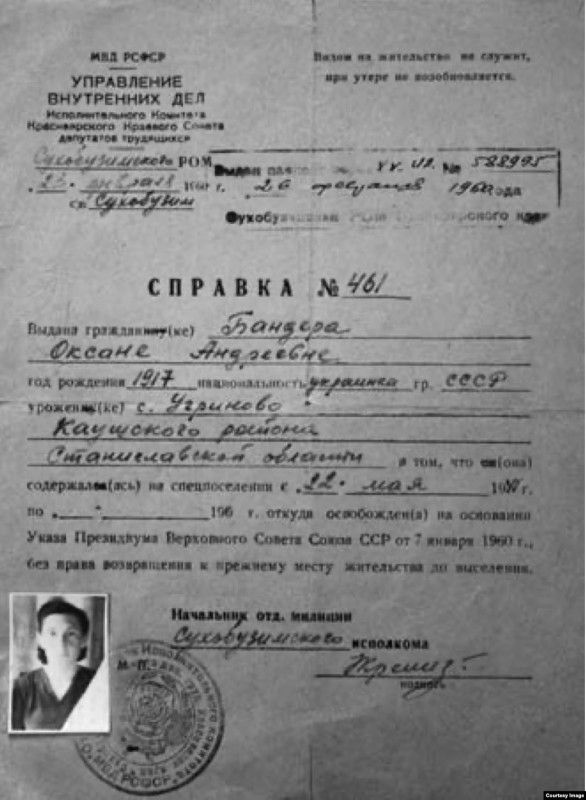 МВД РСФСР
УПРАВЛЕНИЕ
ВНУТРЕННИХ ДЕЛ
Исполнительного Комитета
Красноярского Краевого Совета
депутатов трудящихся
Сухобузимское РОМ
25 февраля 1960 г.
с. Сухобузим
Видом на жительство не служит,
при утере не возобновляется.
Выдан № 588995
26 февраля 1960 года
СПРАВКА № 461
Выдана граждан (ке) Бандера
Оксане Андреевне
год рождения 1917 национальность украинка гр. СССР
урожен (ке) с. Угриново
Каушского района
Станиславской области в том, что он(она)
содержался(ась) на спецпоселении с 22 мая 19 г.
по „ " 196 г. откуда освобожден(а) на основании
Указа Президиума Верховного Совета Союза ССР от 7 января 1960 г.,
без права возвращения к прежнему месту жительства до выселения.
Начальник отд. милиции
Сухобузимского исполкома
подпись
М. П.
МВД РСФСР
Courtesy Image